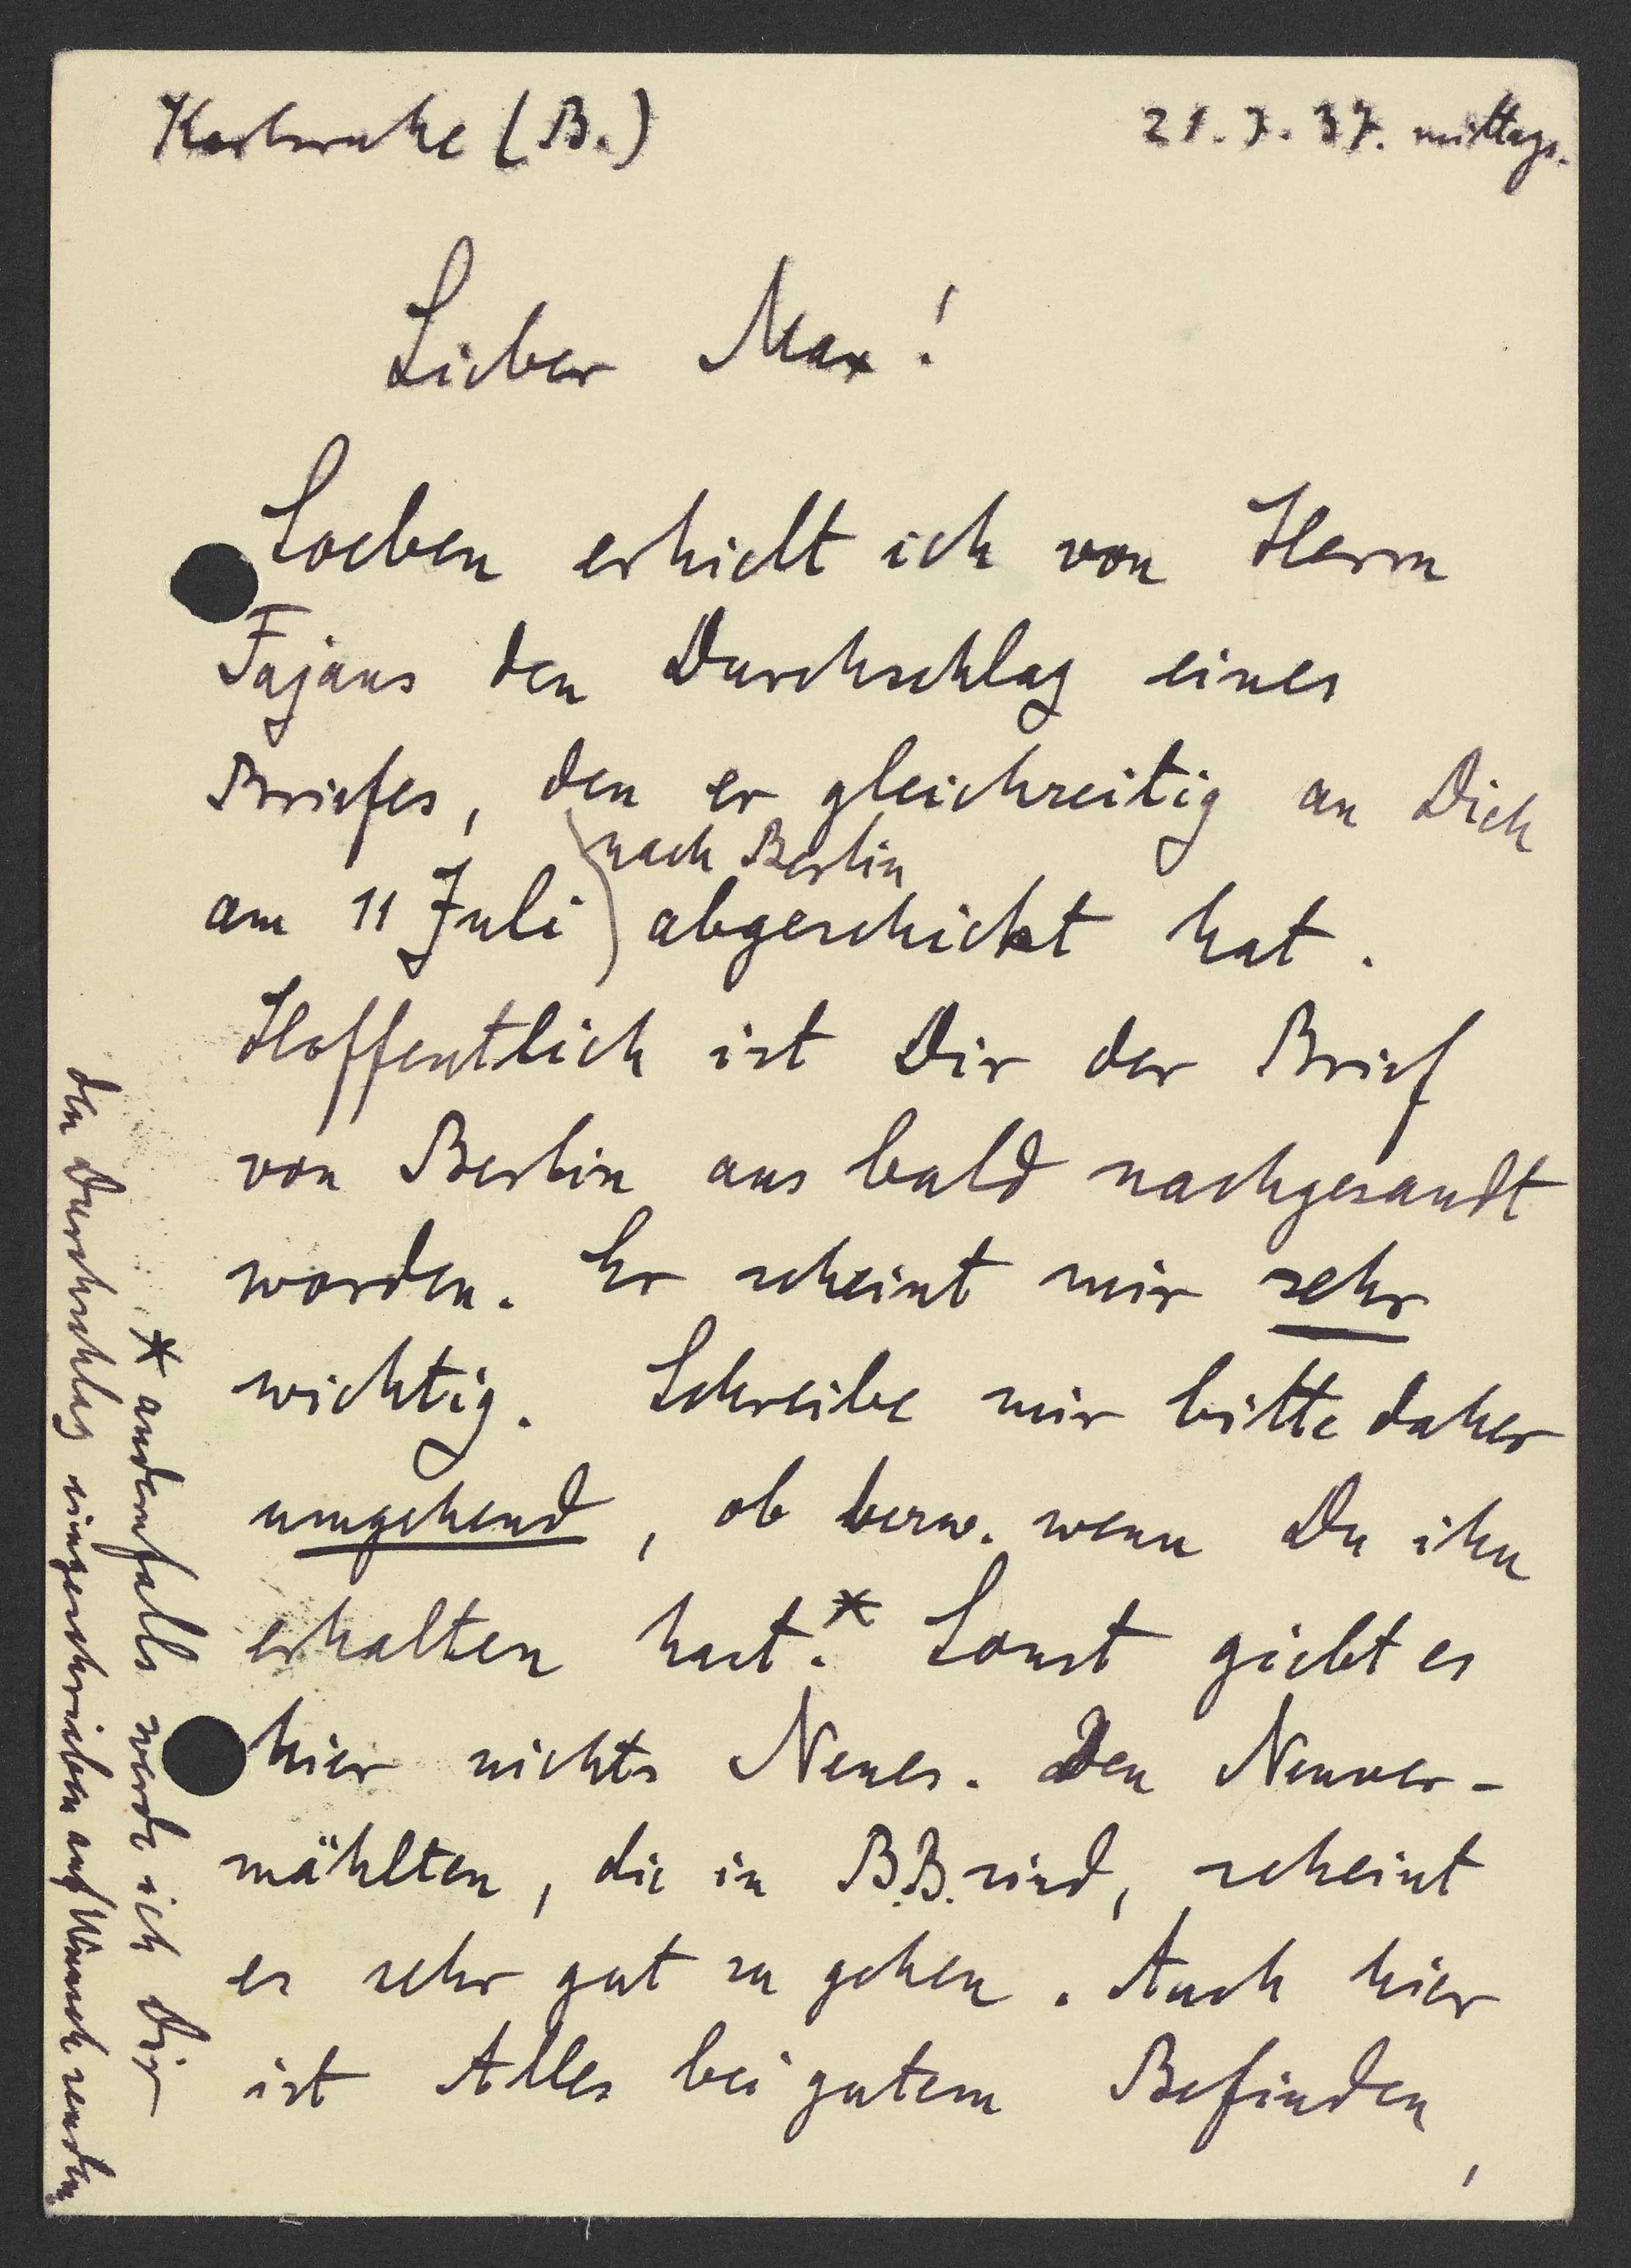 Karlsruhe (B.)
21.7.37. mittags.
Lieber Max!
Soeben erhielt ich von Herrn
Fajans den Durchschlag eines
Briefes, den er gleichzeitig an Dich
nach Berlin
am 11 Juli abgeschickt hat.
Hoffentlich ist Dir der Brief
von Berlin aus bald nachgesandt
worden. Er scheint mir sehr
wichtig. Schreibe mir bitte daher
umgehend, ob bezw. wenn Du ihn
erhalten hast.* Sonst giebt es
hier nichts Neues. Den Neuver-
mählten, die in B.B. sind, scheint
es sehr gut zu gehen. Auch hier
ist Alles bei gutem Befinden,
* andernfalls werde ich Dir
den Durchschlag eingeschrieben auf Wunsch senden